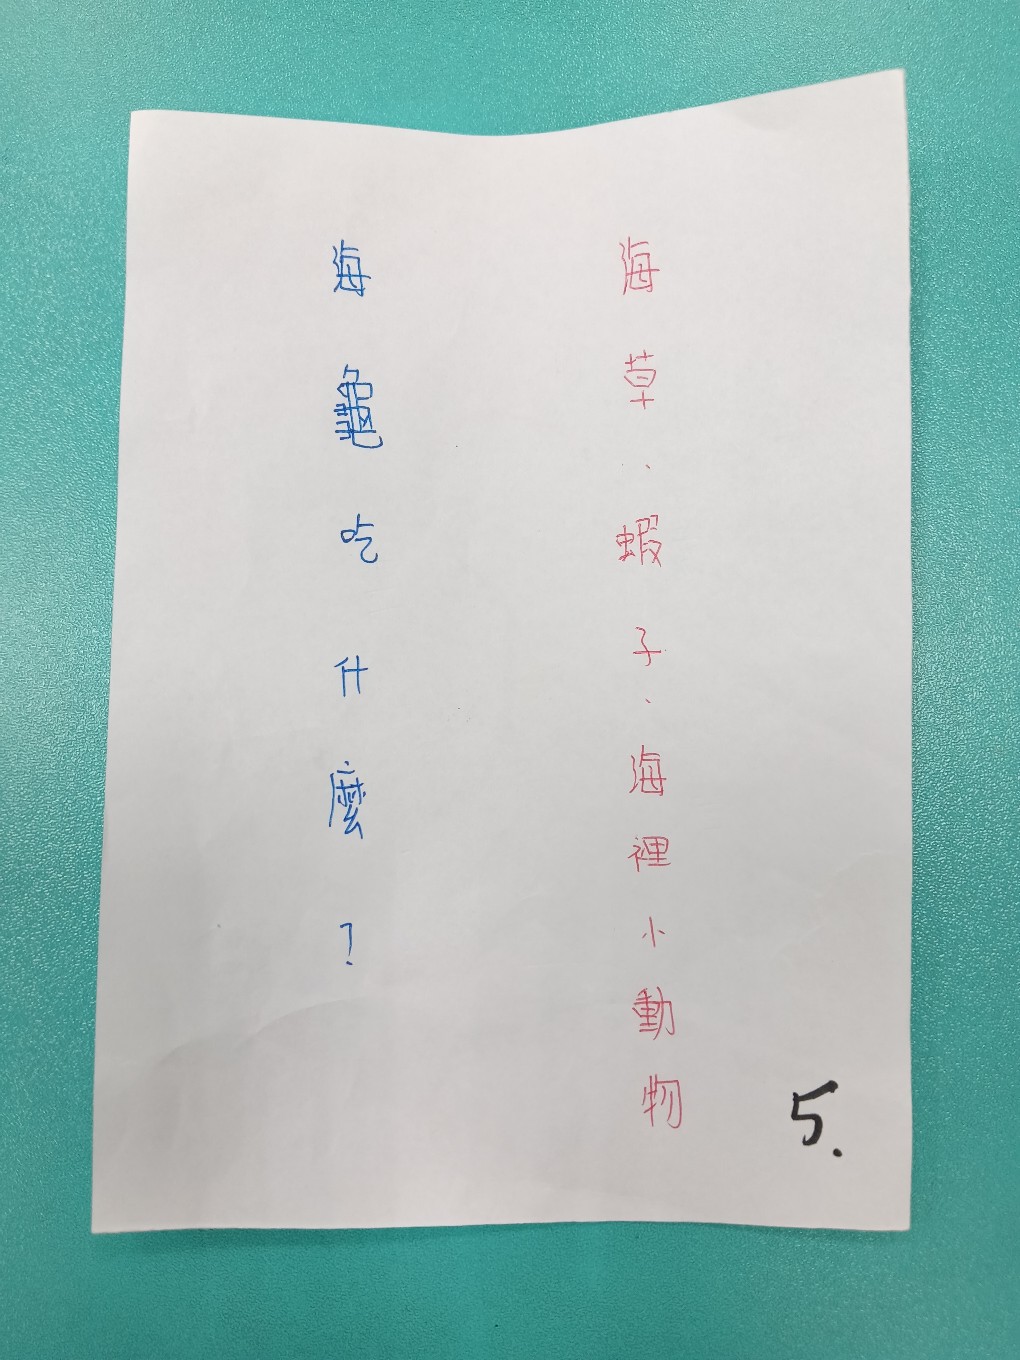 海草、蝦子、海裡小動物
海龜吃什麼？
5.